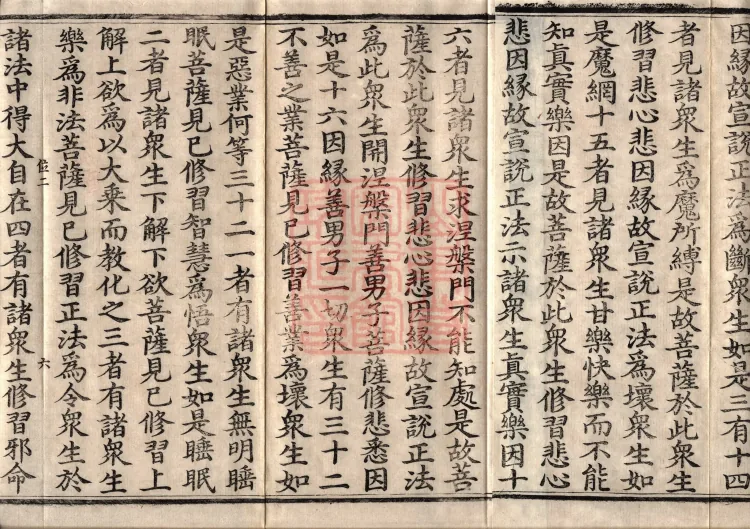 因緣故宣說正法爲斷衆生如是三有十四
者見諸衆生爲魔所縛是故菩薩於此衆生
修習悲心悲因緣故宣說正法爲壞衆生如
是魔網十五者見諸衆生甘樂快樂而不能
知眞實樂因是故菩薩於此衆生修習悲心
悲因緣故宣說正法示諸衆生眞實樂因十
六者見諸衆生求涅槃門不能知處是故菩
薩於此衆生修習悲心悲因緣故宣說正法
爲此衆生開涅槃門善男子菩薩修悲悉因
如是十六因緣善男子一切衆生有三十二
不善之業菩薩見已修習善業爲壞衆生如
是惡業何等三十二一者有諸衆生無明睡
眠菩薩見已修習智慧爲悟衆生如是睡眠
二者見諸衆生下解下欲菩薩見已修習上
解上欲爲以大乘而教化之三者有諸衆生
樂爲非法菩薩見已修習正法爲令衆生於
六
諸法中得大自在四者有諸衆生修習邪命